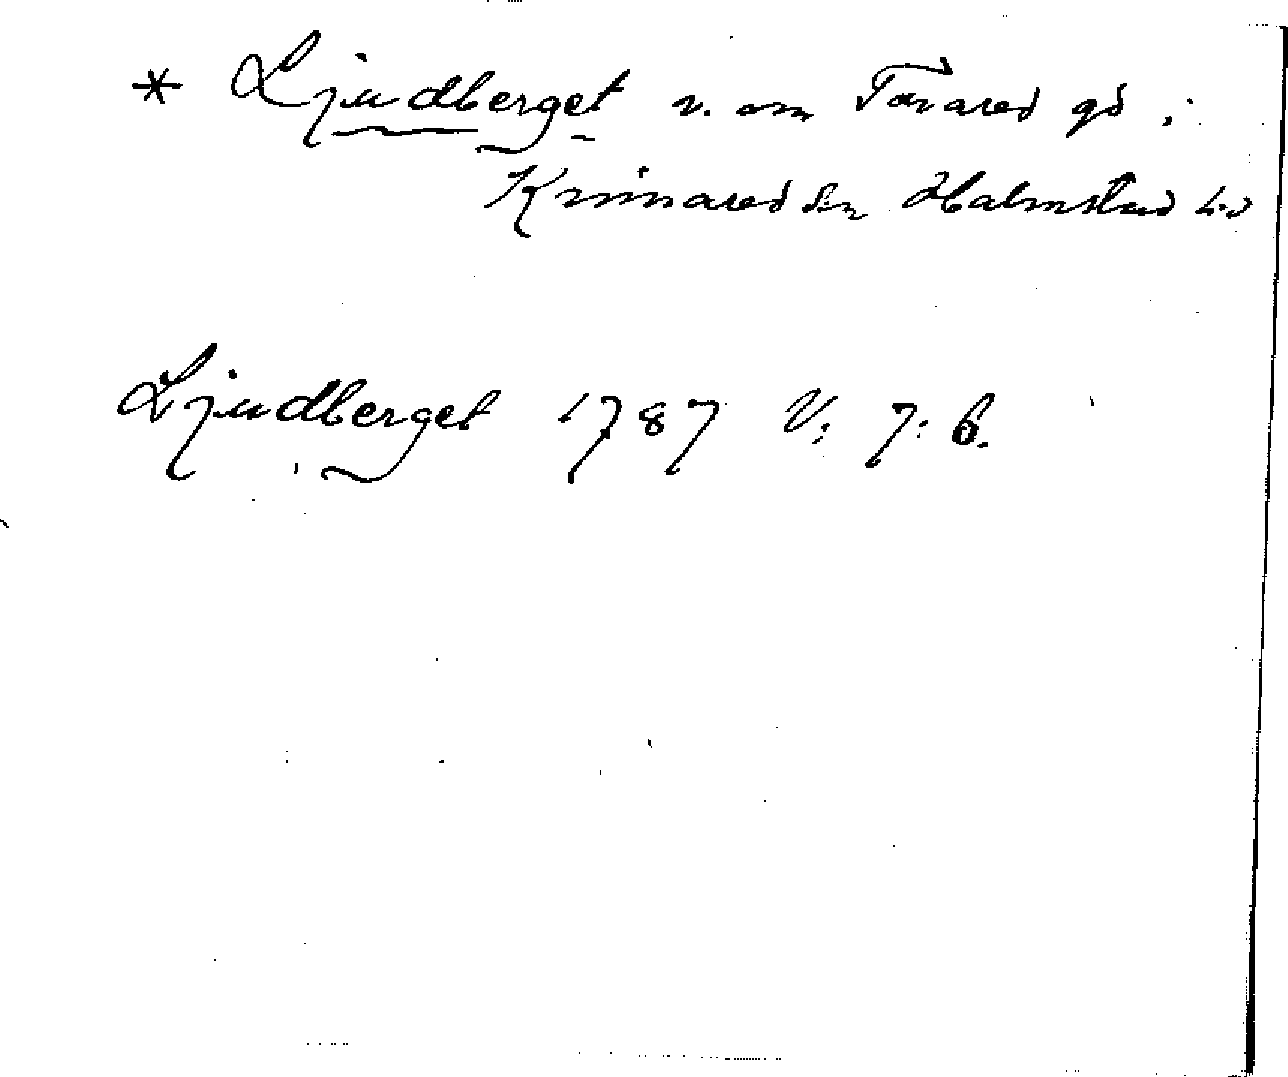 * Ljudberget v. om Tavared gd i
Kinnared sn Halmstad hd
Ljudberget 1787 V: 7: 6.